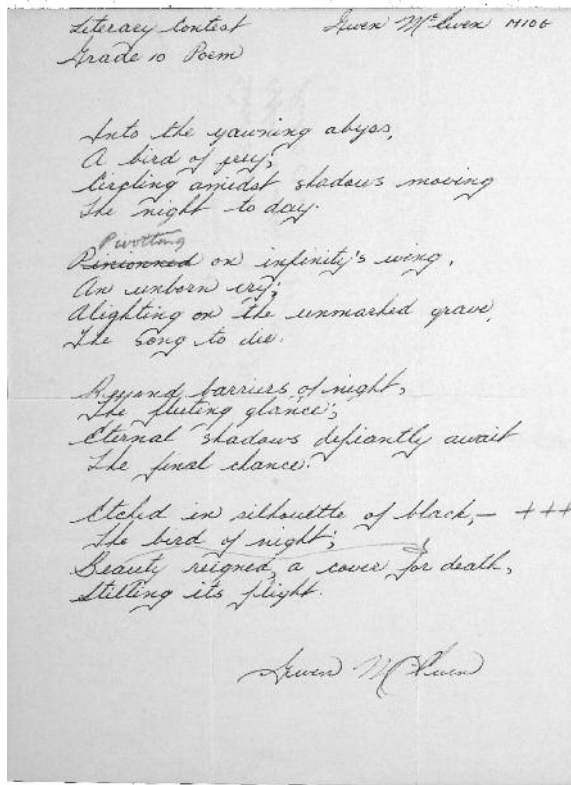 Literary Contest Gwen McEwen M10G
Grade 10 Poem
Into the yawning abyss,
A bird of prey;
Circling amidst shadows moving
The night to day.
Pivotting
Pinionned on infinity's wing,
An unborn cry;
Alighting on the unmarked grave,
The song to die.
Beyond barriers of night,
The fleeting glance;
Eternal shadows defiantly await
The final chance.
Etched in silhouette of black, – +++
The bird of night;
Beauty reigned, a cover for death,
Stilling its flight.
Gwen McEwen